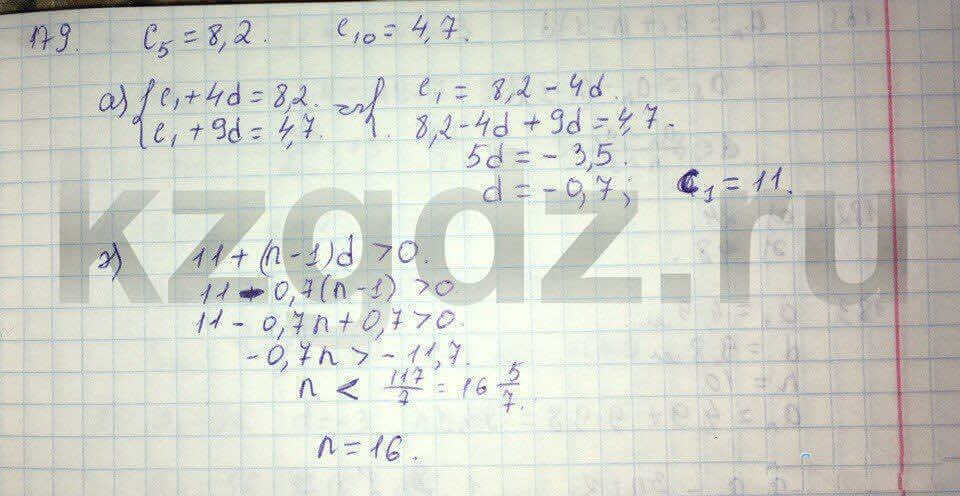 179. c₅ = 8,2. c₁₀ = 4,7.
а) { c₁ + 4d = 8,2. => { c₁ = 8,2 - 4d.
{ c₁ + 9d = 4,7. 8,2 - 4d + 9d = 4,7.
5d = - 3,5.
d = - 0,7; c₁ = 11.
kzgdz.ru
11 + (n - 1)d > 0.
11 - 0,7(n - 1) > 0
11 - 0,7n + 0,7 > 0.
- 0,7n > - 11,7.
n < 117/7 = 16 5/7.
n = 16.